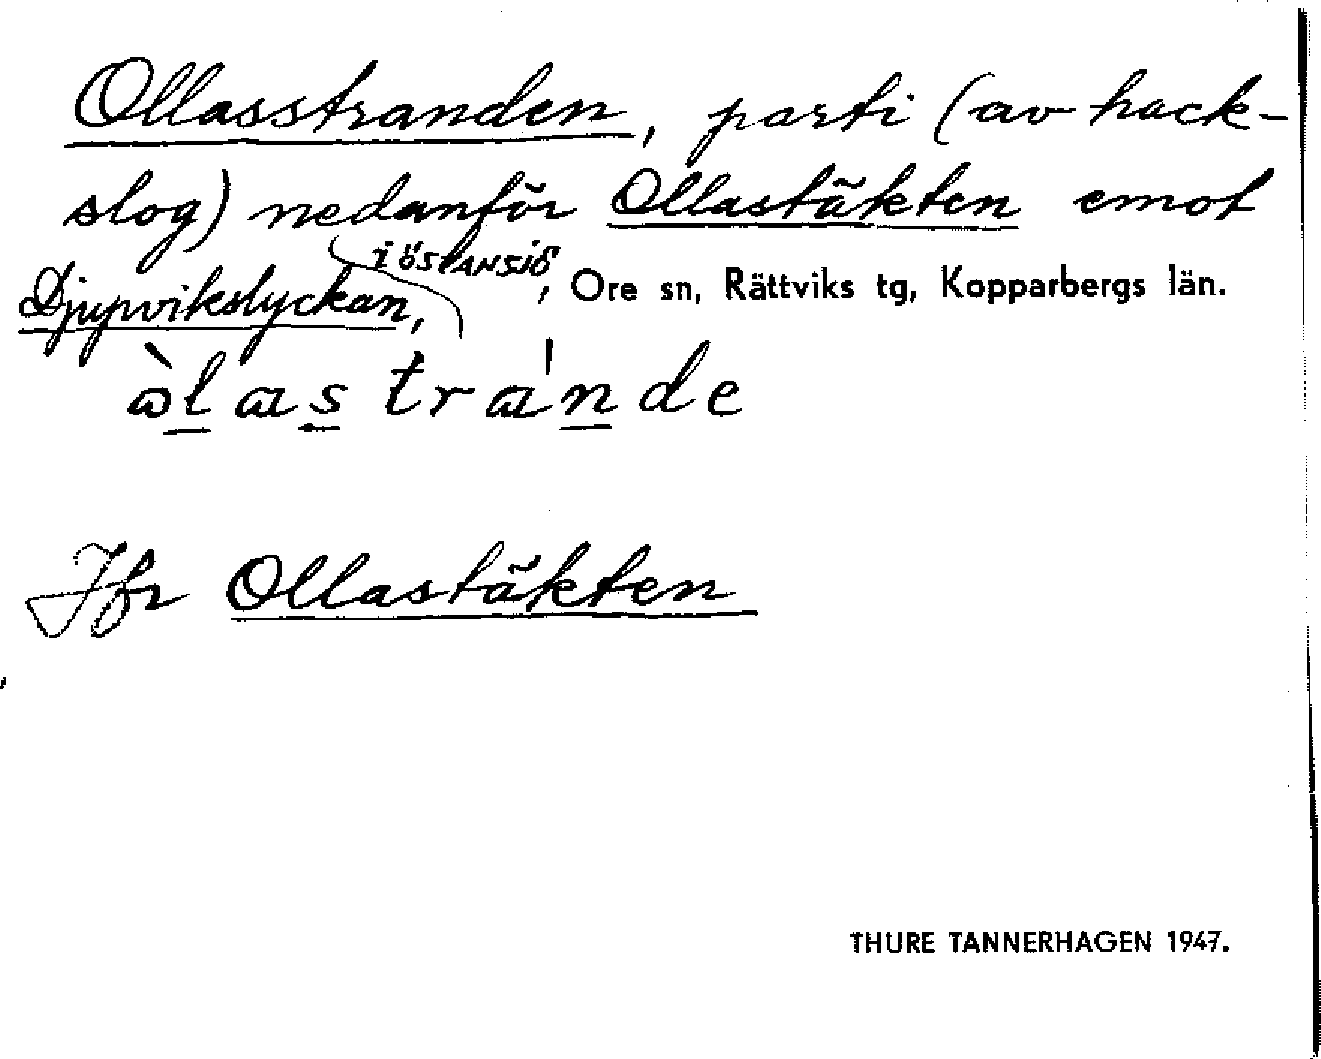 Ollasstranden, parti (av hack-
slog) nedanför Ollastäkten emot
i ÖSTANSJÖ
Djupvikslyckan, , Ore sn, Rättviks tg, Kopparbergs län.
Jfr Ollastäkten
THURE TANNERHAGEN 1947.